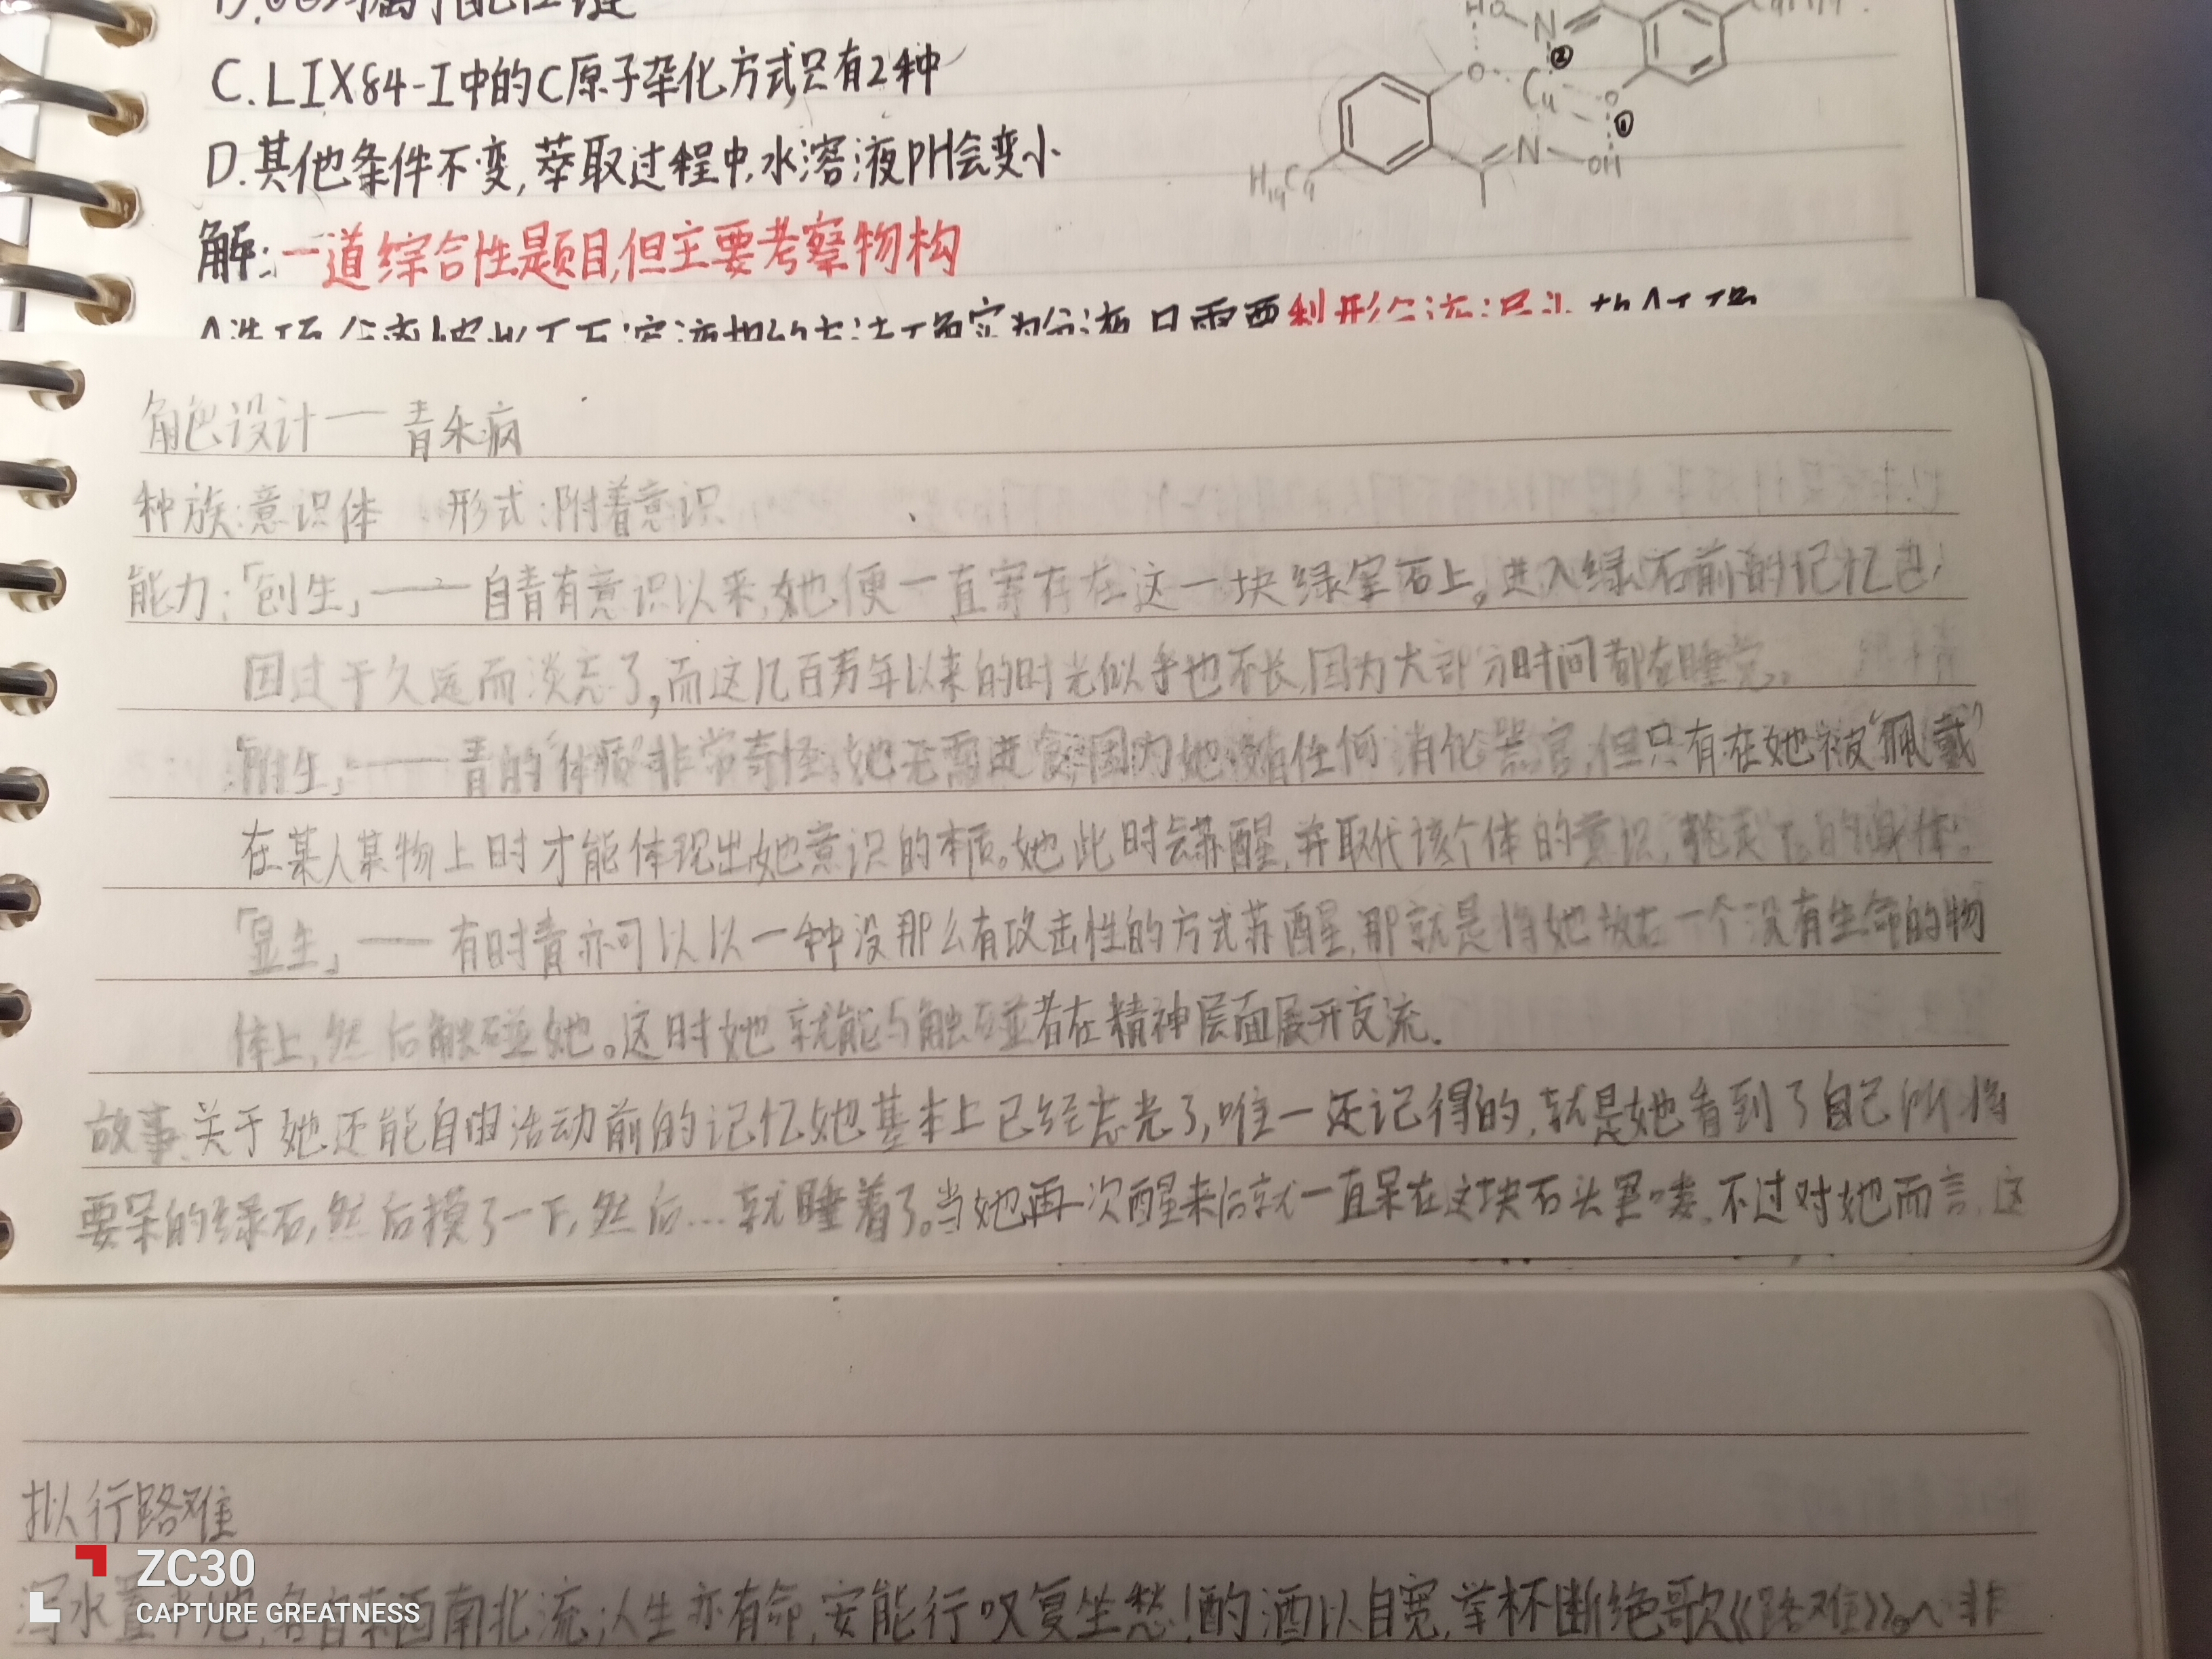 C.LIX84-I中的C原子杂化方式只有2种
D.其他条件不变,萃取过程中,水溶液PH会变小
HO N
② 
O Cu O
①
N OH
H19C9
解:一道综合性题目,但主要考察物构
角色设计——青禾病
种族:意识体 形式:附着意识
能力:「创生」——自青有意识以来,她便一直寄存在这一块绿宝石上。进入绿石前的记忆已
因过于久远而淡忘了,而这几百万年以来的时光似乎也不长,因为大部分时间都在睡觉。
「附生」——青的“体质”非常奇怪,她无需进食,因为她没有任何消化器官,但只有在她被“佩戴”
在某人某物上时才能体现出她意识的本质。她此时会苏醒,并取代该个体的意识,的身体。
「显生」——有时青亦可以以一种没那么有攻击性的方式苏醒,那就是将她放在一个没有生命的物
体上,然后触碰她。这时她就能与触碰者在精神层面展开交流.
故事:关于她还能自由活动前的记忆她基本上已经忘光了,唯一还记得的,就是她看到了自己所将
要呆的绿石,然后摸了一下,然后...就睡着了。当她再一次醒来后就一直呆在这块石头里喽。不过对她而言,这
拟行路难
泻水置平地,各自东西南北流;人生亦有命,安能行叹复坐愁!酌酒以自宽,举杯断绝歌《路难》。心非
ZC30
CAPTURE GREATNESS